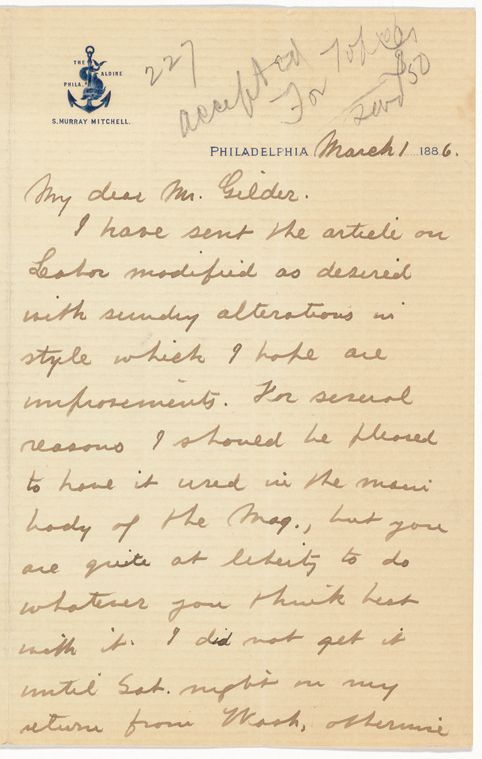 THE ALDINE
PHILA.
S. MURRAY MITCHELL.
227
accepted
For Topics
send $50
PHILADELPHIA March 1 1886.
My dear Mr. Gilder.
I have sent the article on
Labor modified as desired
with sundry alterations in
style which I hope are
improvements. For several
reasons I should be pleased
to have it used in the main
body of the Mag., but you
are quite at liberty to do
whatever you think best
with it. I did not get it
until Sat. night on my
return from Wash, otherwise